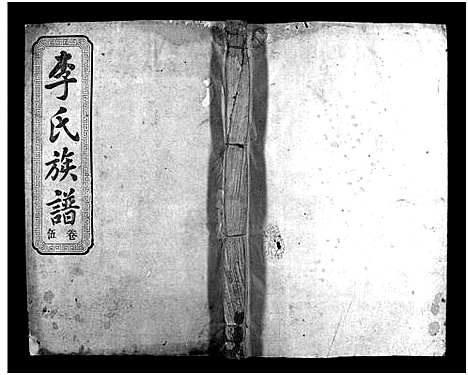 李氏族譜
卷伍